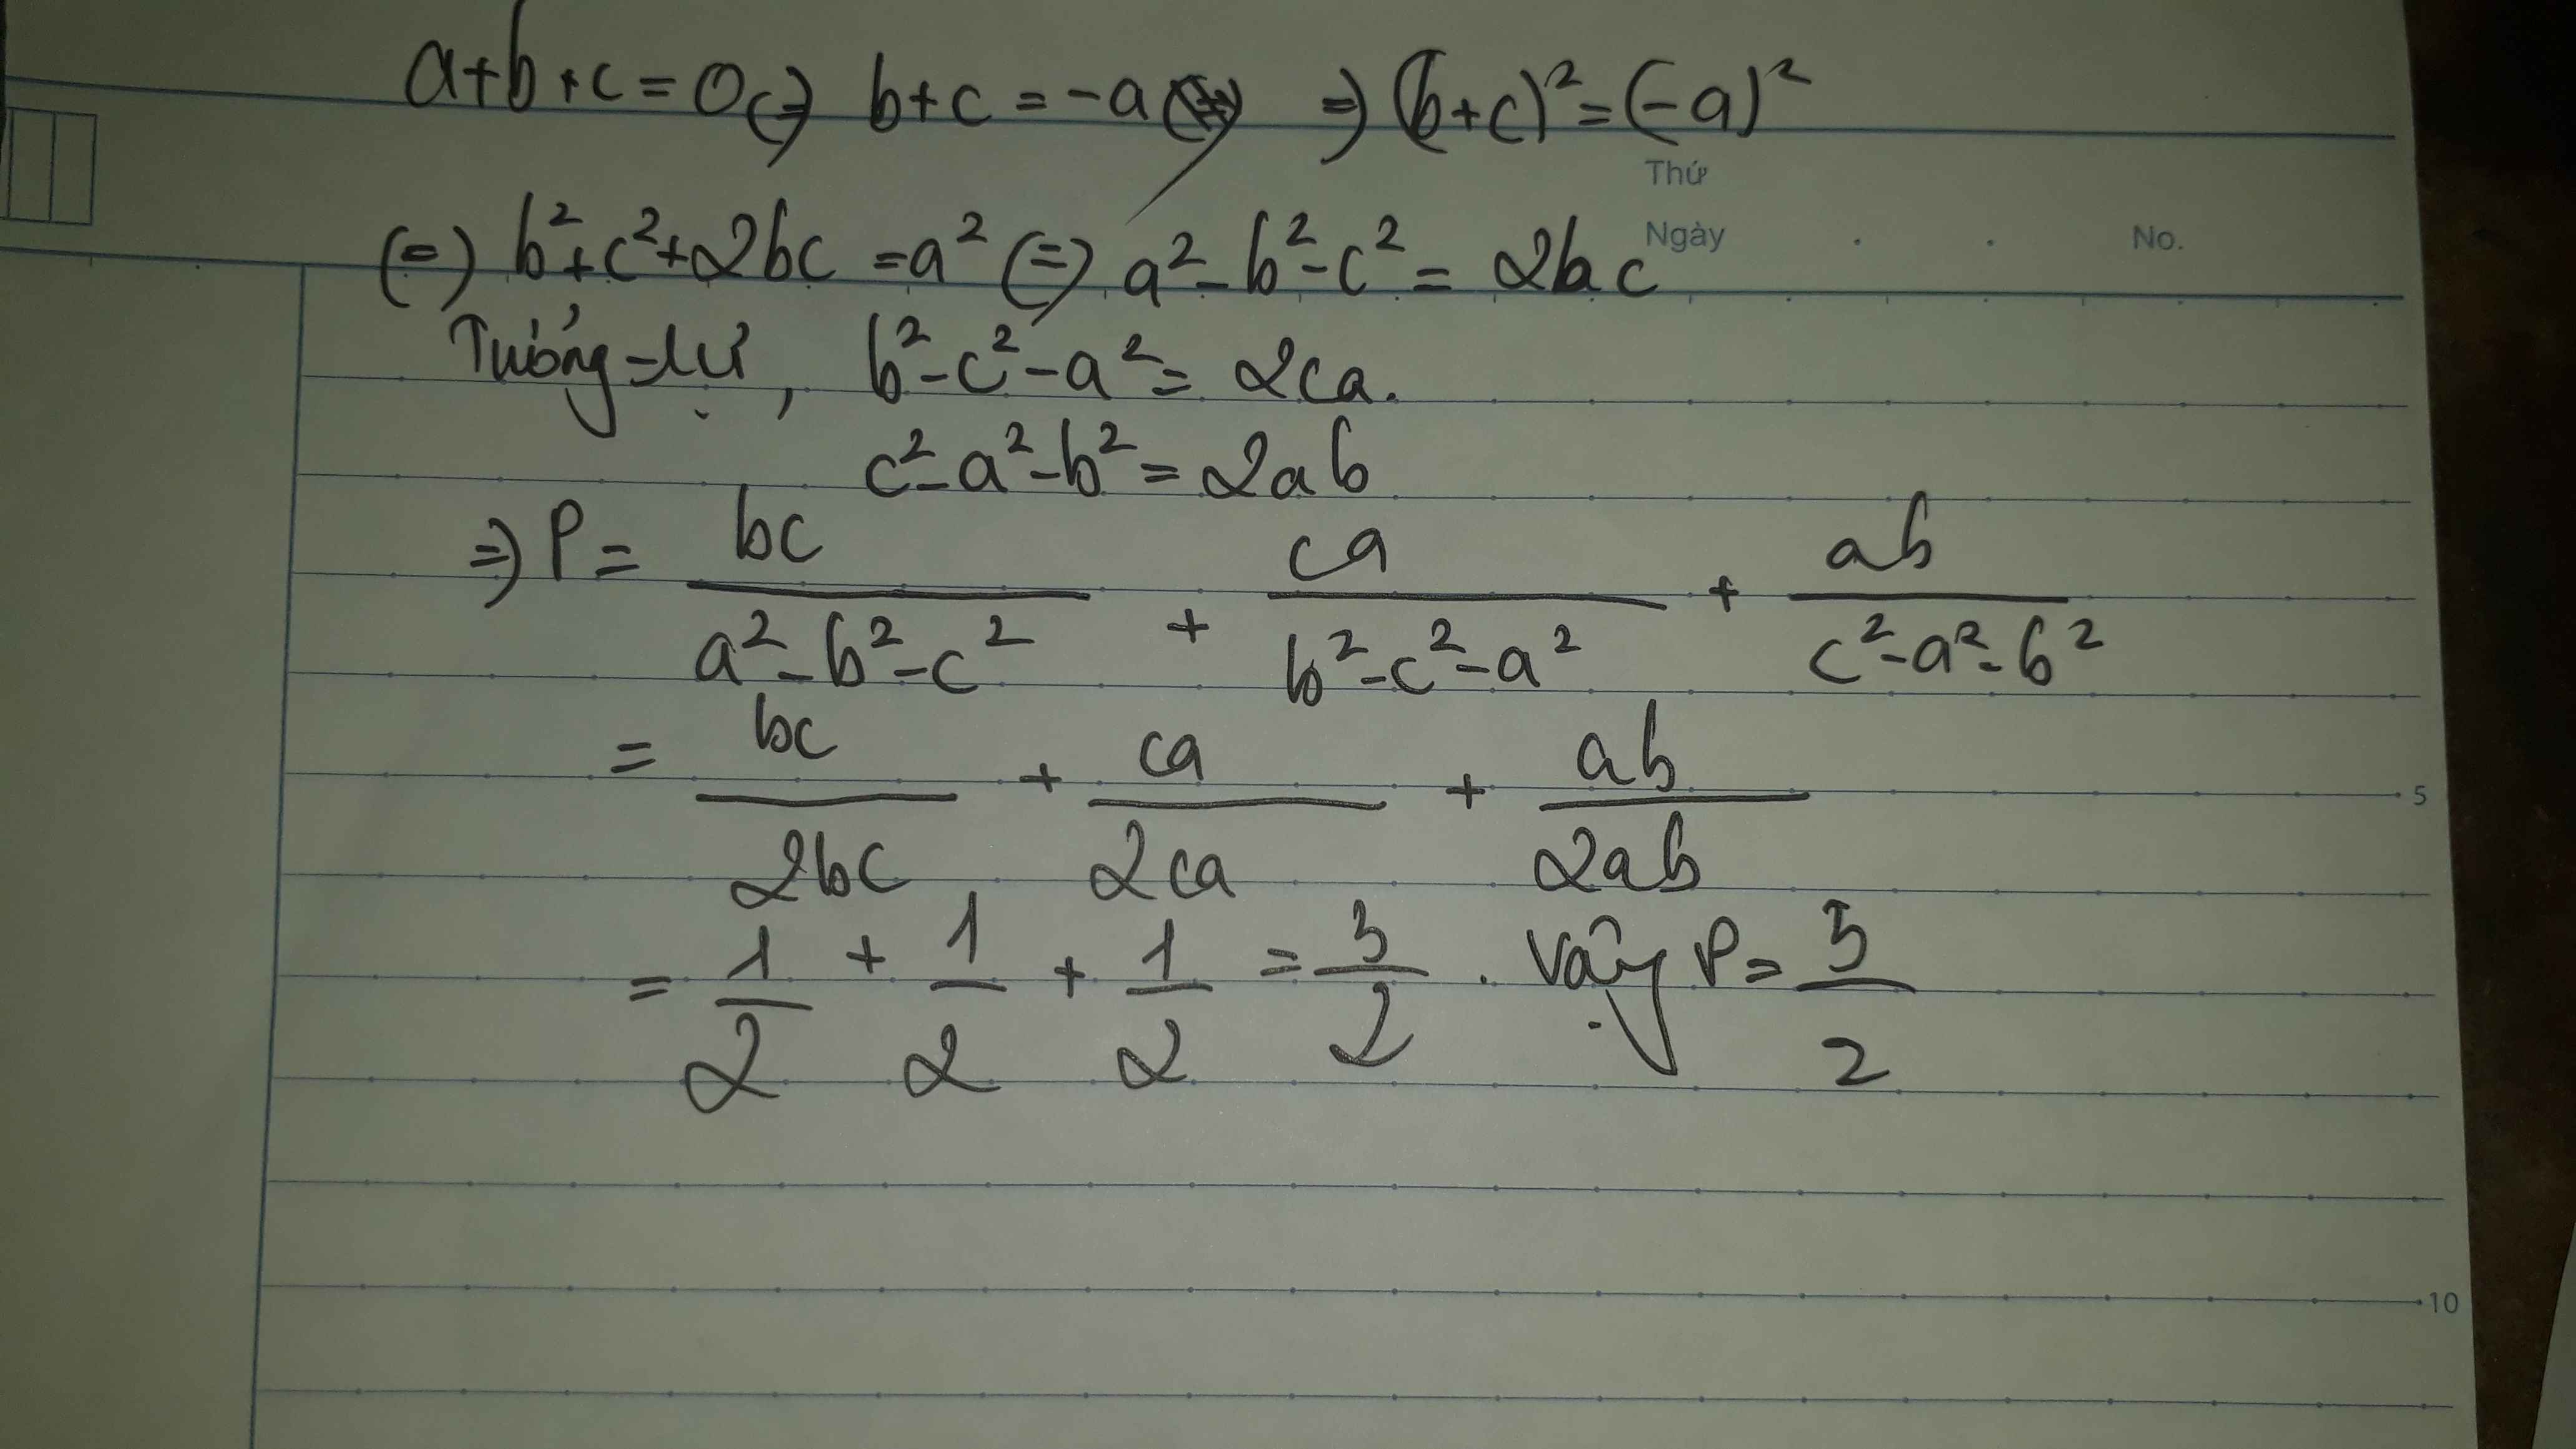 a+b+c=0 (=) b+c = -a => (b+c)² = (-a)²
Thứ
(=) b²+c²+2bc = a² (=) a²-b²-c² = 2bc
Ngày . . No.
Tương tự, b²-c²-a² = 2ca.
c²-a²-b² = 2ab
=> P = bc/(a²-b²-c²) + ca/(b²-c²-a²) + ab/(c²-a²-b²)
= bc/2bc + ca/2ca + ab/2ab
5
= 1/2 + 1/2 + 1/2 = 3/2 . Vậy P = 3/2
10